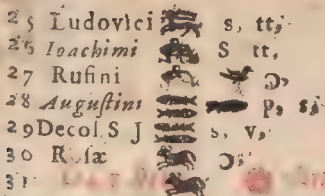 25 Ludovici s, tt,
26 Ioachimi S tt,
27 Rufini ɔ,
28 Auguſtini p, s,
29 Decol. S J s, v,
30 Roſæ ɔ,
31